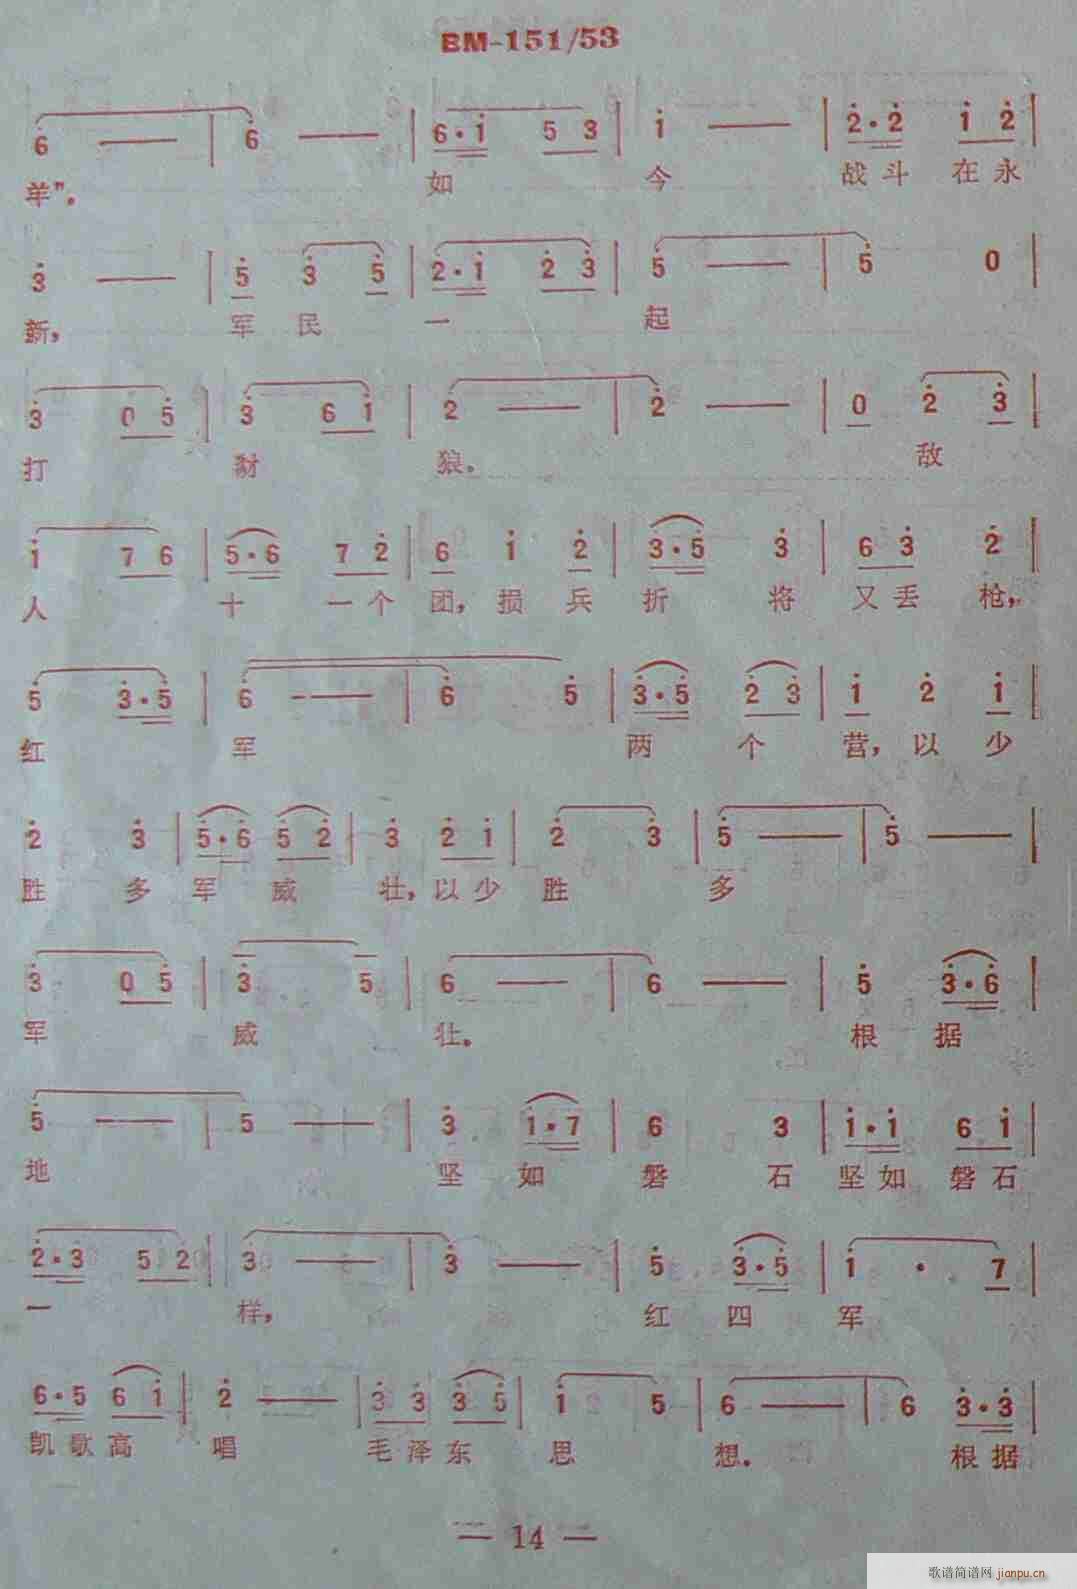 BM-151/53
6 — | 6 — | 6·i 5 3 | i — | 2·2 i 2 |
羊”。 如 今 战斗 在永
3 — | 5 3 5 | 2·i 2 3 | 5 — | 5 0 |
新, 军 民 一 起
3 0 5 | 3 6 i | 2 — | 2 — | 0 2 3 |
打 豺 狼。 敌
i 7 6 | 5·6 7 2 | 6 i 2 | 3·5 3 | 6 3 2 |
人 十 一个 团, 损 兵 折 将 又丢 枪,
5 3·5 | 6 — | 6 5 | 3·5 2 3 | i 2 i |
红 军 两 个 营, 以 少
2 3 | 5·6 5 2 | 3 2 i | 2 3 | 5 — | 5 — |
胜 多 军 威 壮, 以少 胜 多
3 0 5 | 3 5 | 6 — | 6 — | 5 3·6 |
军 威 壮。 根 据
5 — | 5 — | 3 i·7 | 6 3 | i·i 6 i |
地 坚 如 磐 石 坚如 磐石
2·3 5 2 | 3 — | 3 — | 5 3·5 | i · 7 |
一 样, 红 四 军
6·5 6 i | 2 — | 3 3 3 5 | i 5 | 6 — | 6 3·3 |
凯歌高 唱 毛泽东 思 想。 根据
— 14 —
歌谱简谱网 jianpu.cn